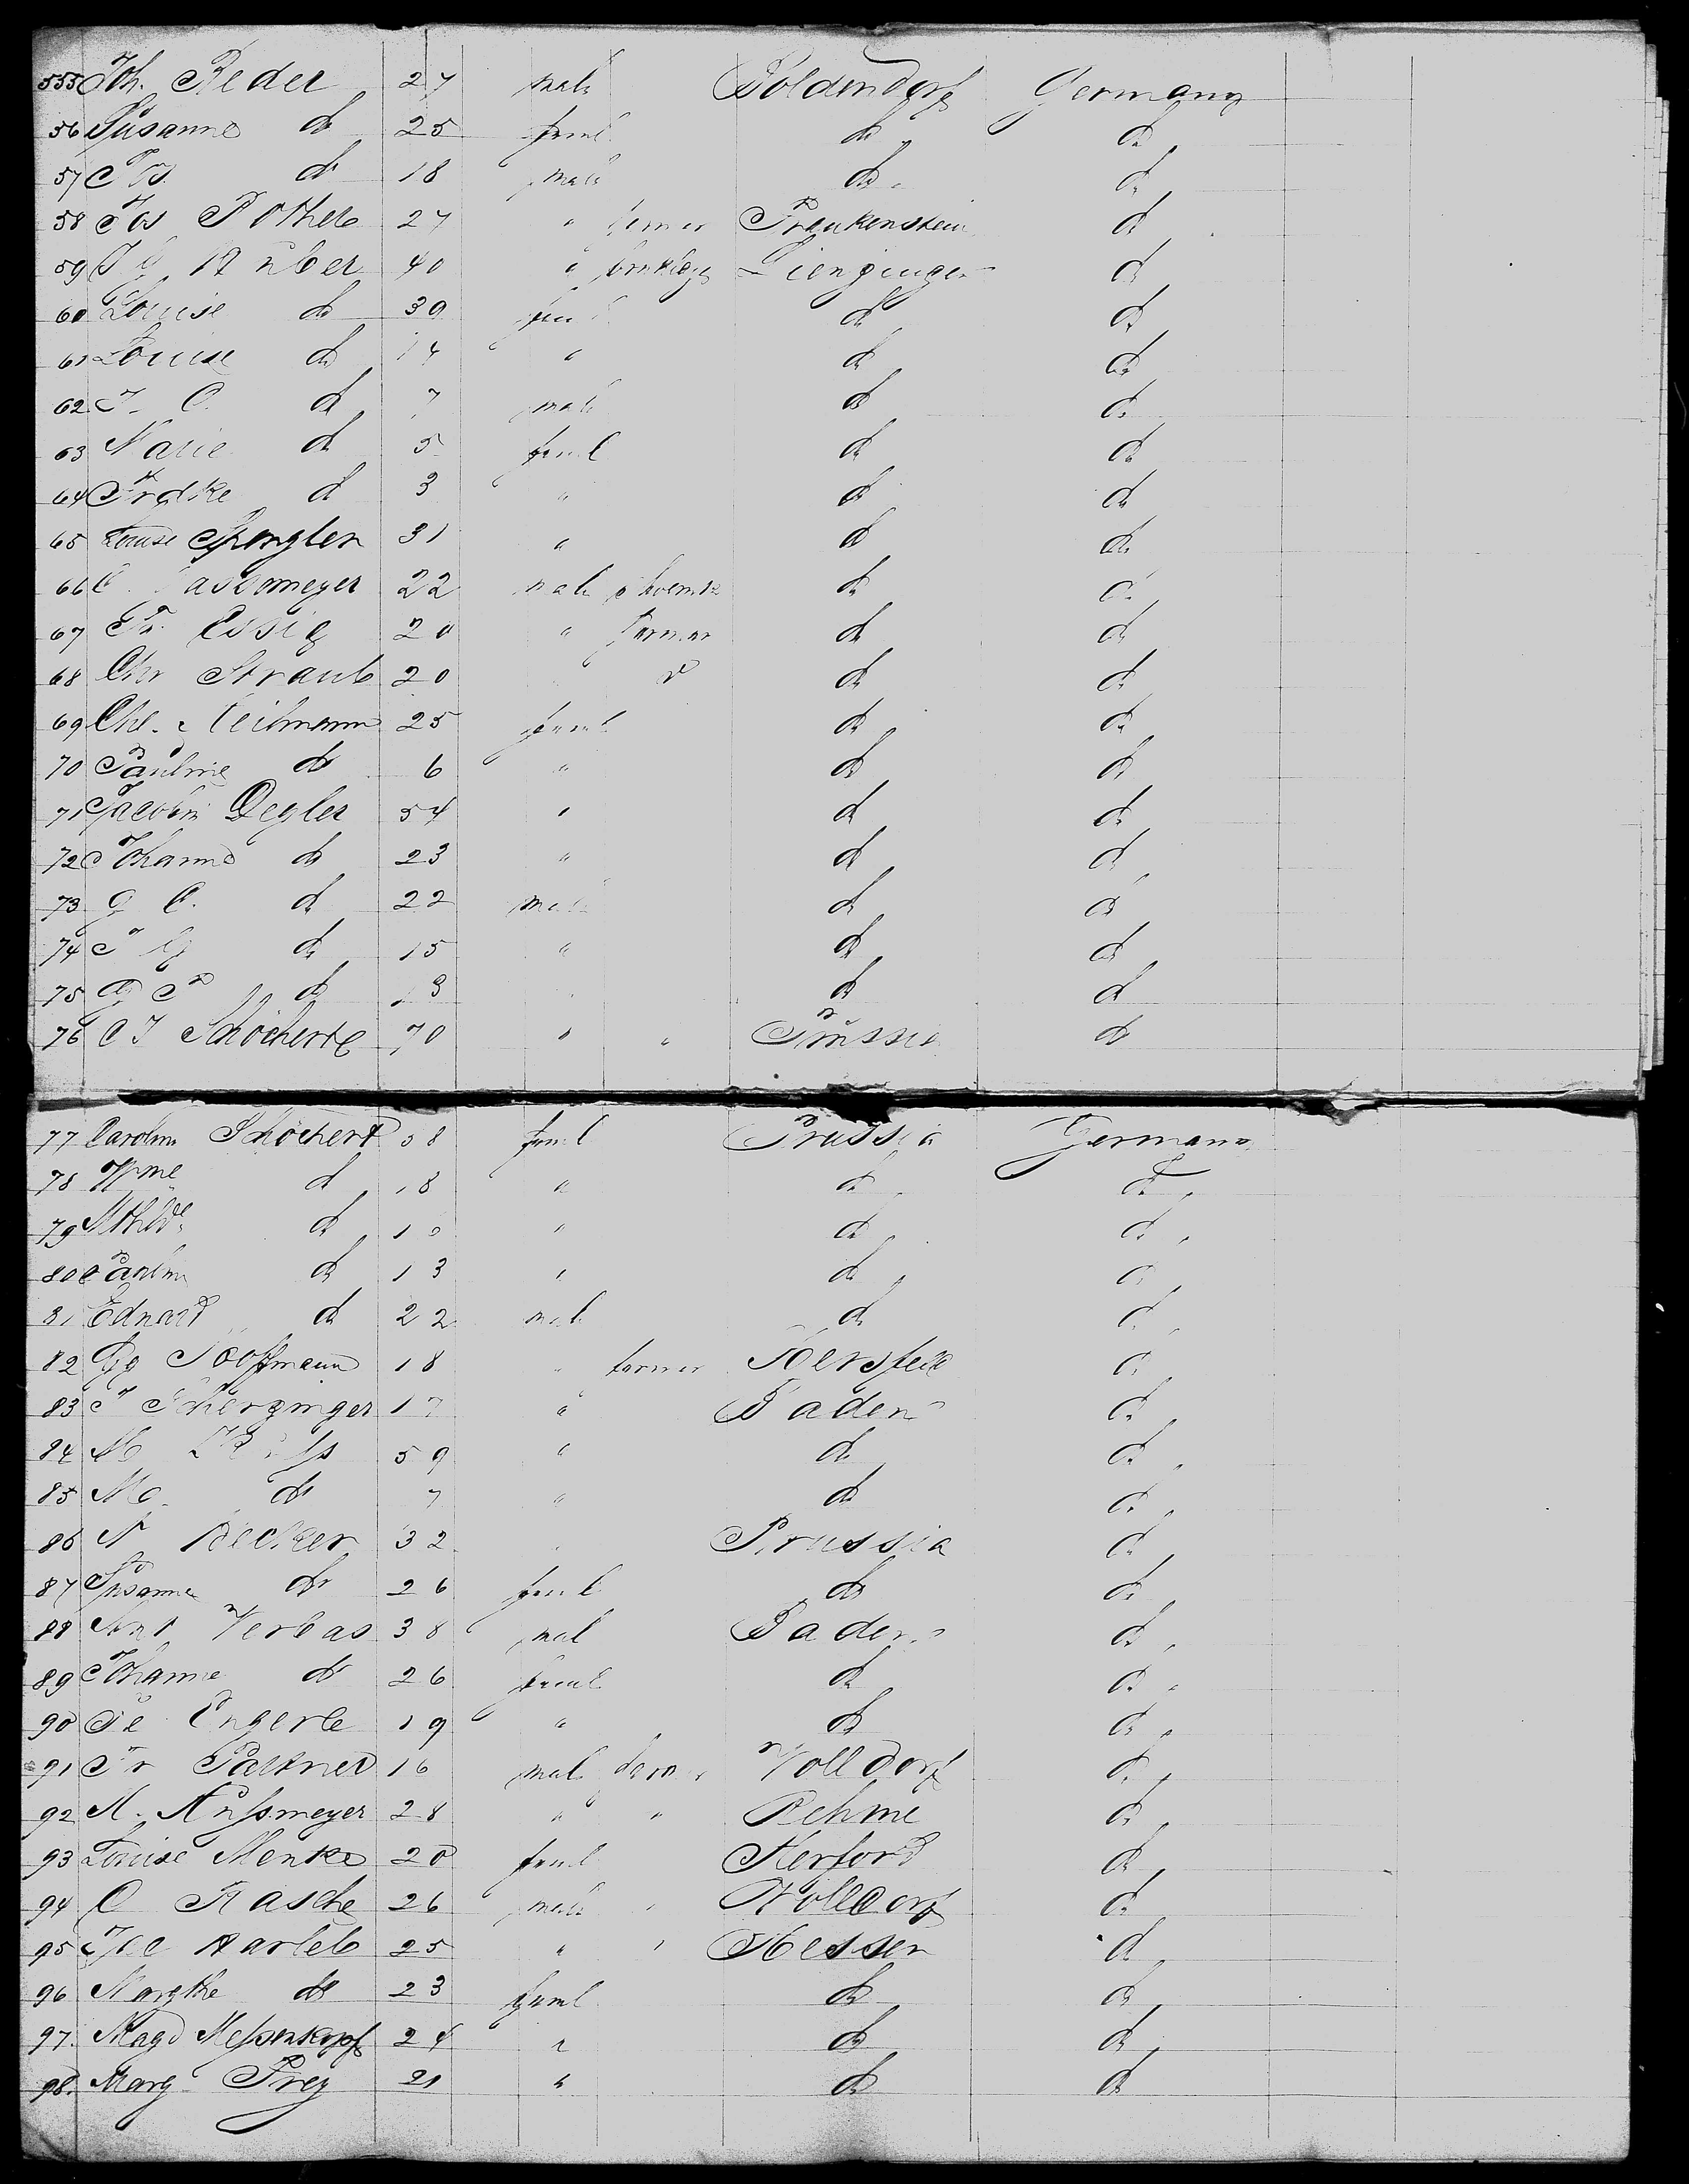 555 Joh. Reder 27 male Boldendorf Germany
56 Susanne do 25 feml do do
57 Jos. do 18 male do do
58 Jos 27 " farmer Frankenstein do
59 J G Huber 40 " Lienzingen do
60 Louise do 39 feml do do
61 Louise do 14 " do do
62 J. C. do 7 male do do
63 Marie do 5 feml do do
64 Frdke do 3 " do do
65 Louise Spengler 31 " do do
66 C. 22 male do do
67 Fr. Essig 20 " farmer do do
68 Chr Straub 20 do do do
69 Che. 25 feml do do
70 Pauline do 6 " do do
71 Jacobin Degler 54 " do do
72 Johanna do 23 " do do
73 G C. do 22 male do do
74 J G do 15 " do do
75 do do do
76 C J Schöchert 70 " " Prussia do
77 Carolin Schöchert 58 feml Prussia Germany
78 Wme do 18 " do do
79 Mthlde do " do do
80 Paulin do 13 " do do
81 Eduard do 22 male do do
82 Gg Hoffmann 18 farmer Hersfeld do
83 J Scherzinger 17 " Baden do
84 M 59 " do do
85 M. do 7 " do do
86 N Becker 32 Prussia do
87 Susanna do 26 feml do do
88 Ant Verbas 38 mal Baden do
89 Johanne do 26 feml do do
90 Engerle 19 " do do
91 Fr 16 mal farmer Volldorf do
92 A. Nussmeyer 28 " " Rehme do
93 Louise Menke 20 feml Herford do
94 C Rasche 26 male " Volldorf do
95 25 " " Hessen do
96 Margthe do 23 feml do do
97. Magd Messenkopf 24 " do do
98. Marg Frey 21 " do do